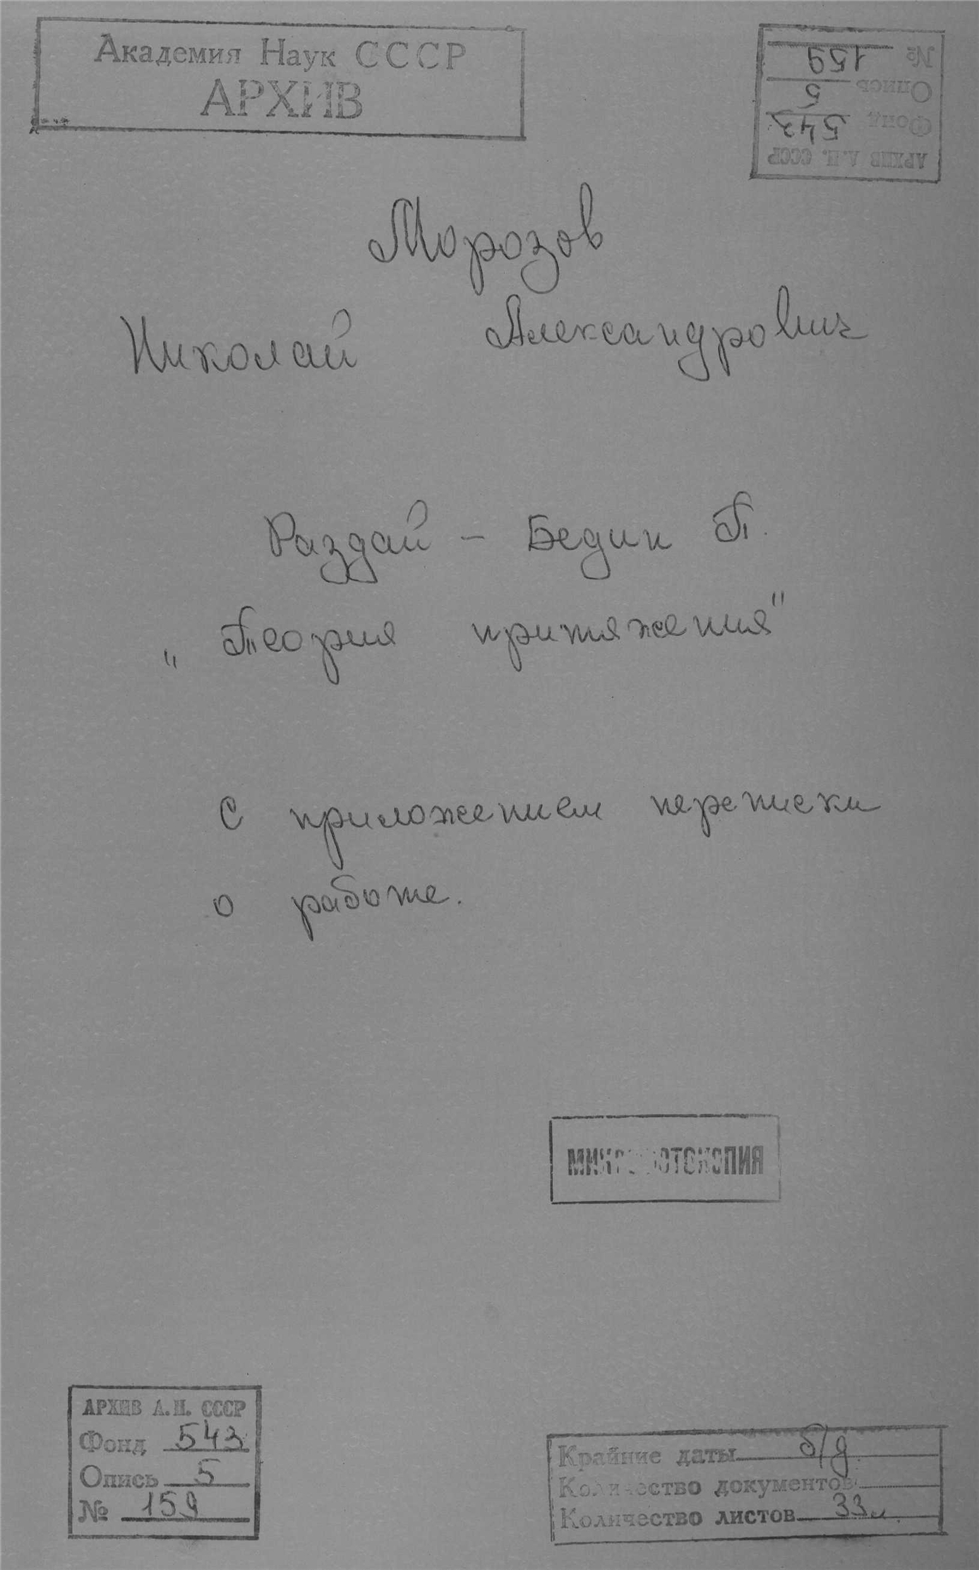 Академия Наук СССР
АРХИВ
№ 159
Опись 5
Фонд 543
АРХИВ А.Н. СССР
Морозов
Николай Александрович
Раздай - Бедин П.
„Теория притяжения"
С приложением переписки
о работе.
МИКРОФОТОКОПИЯ
АРХИВ А.Н. СССР
Фонд 543
Опись 5
№ 159
Крайние даты б/д
Количество документов
Количество листов 33 л.